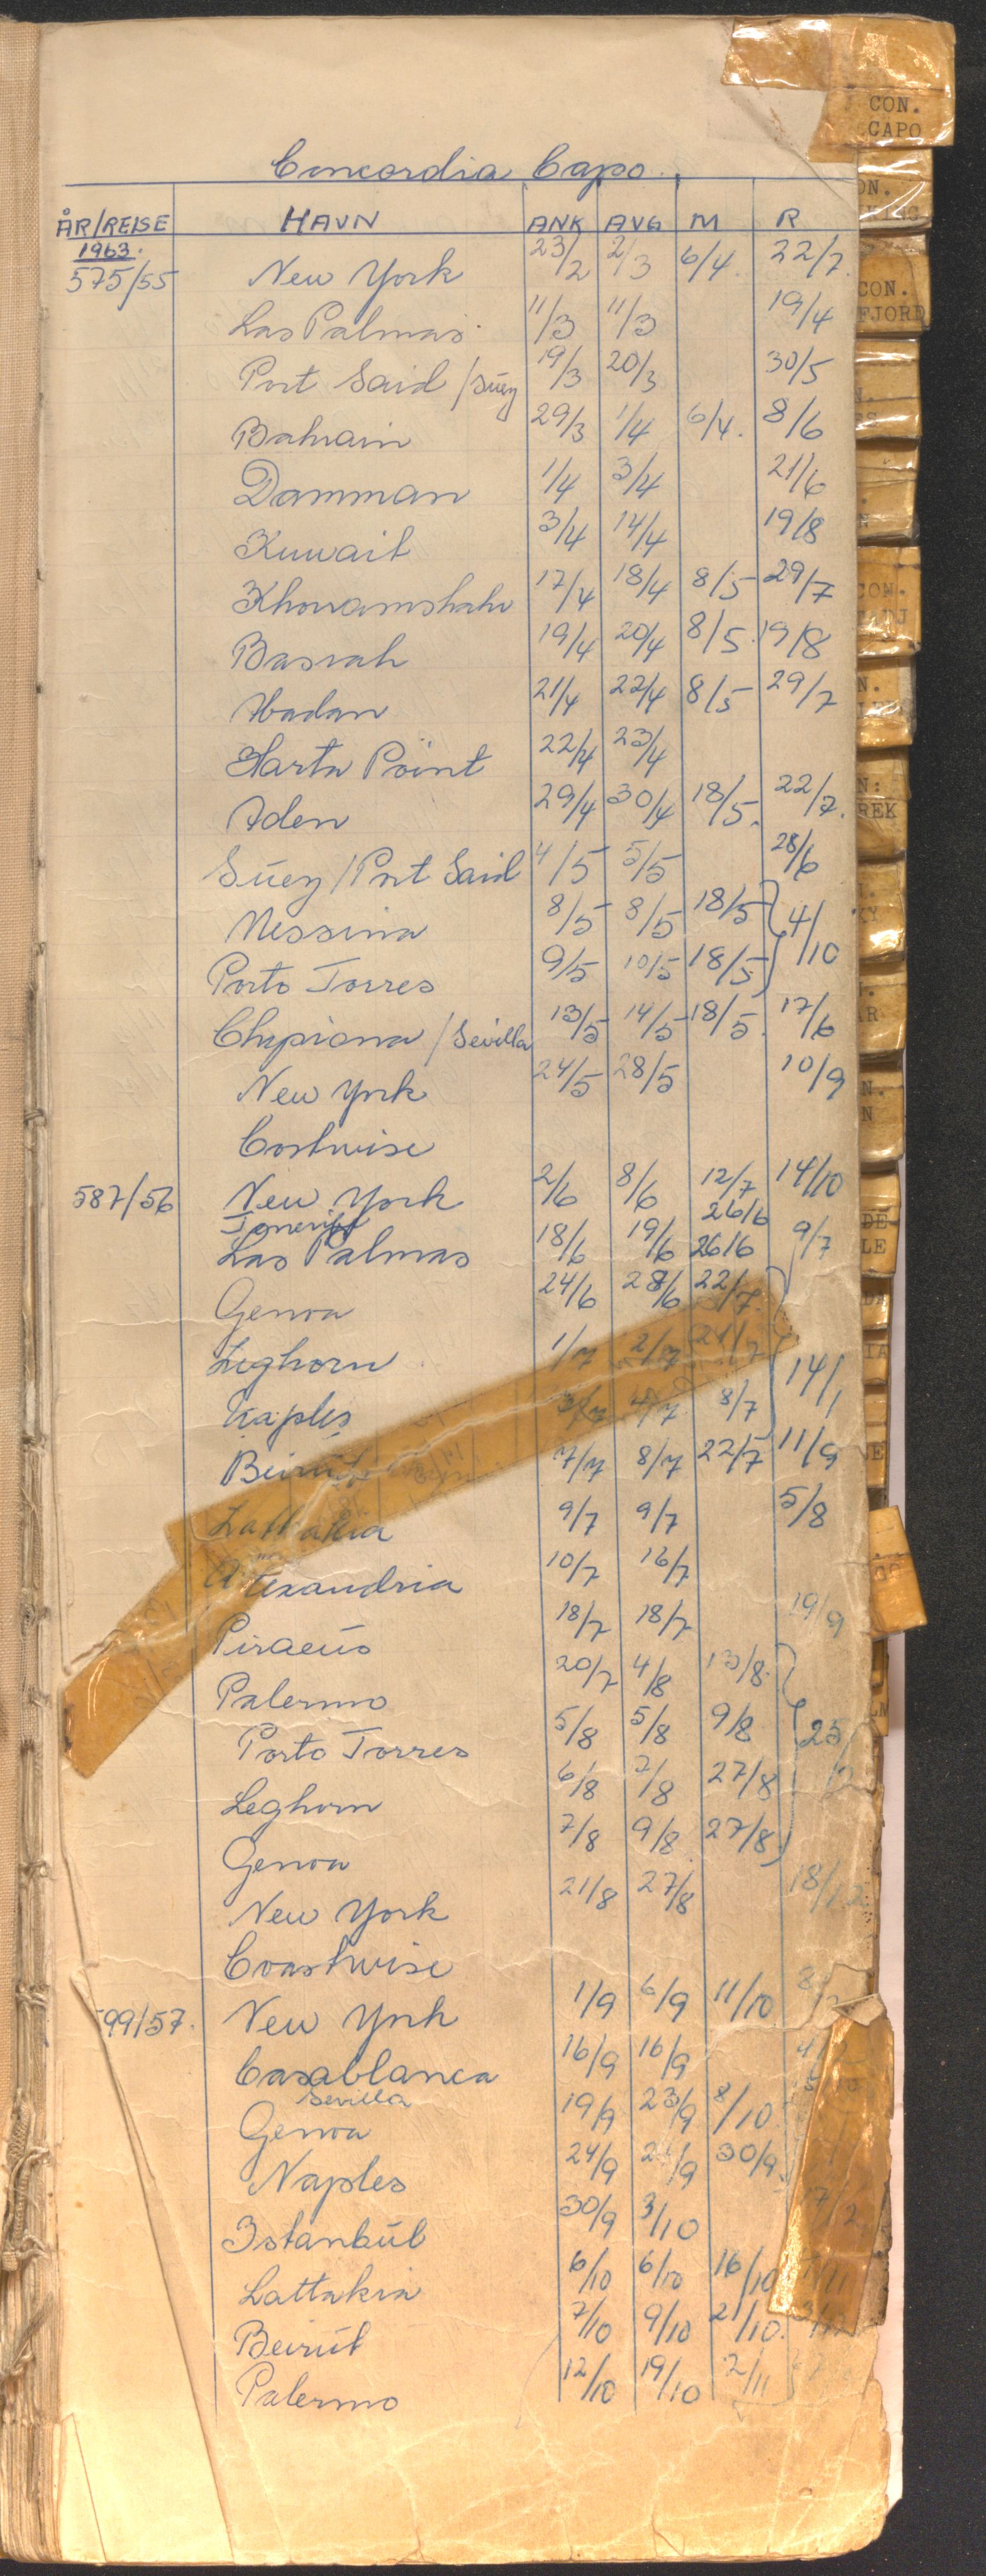 Concordia Capo.
ÅR/REISE HAVN ANK AVG M R
1963.
575/55 New York 23/2 2/3 6/4. 22/7.
Las Palmas 11/3 11/3 19/4
Port Said/Suez 19/3 20/3 30/5
Bahrain 29/3 1/4 6/4. 8/6
Damman 1/4 3/4 21/6
Kuwait 3/4 14/4 19/8
Khorramshahr 17/4 18/4 8/5 29/7
Basrah 19/4 20/4 8/5. 19/8
Abadan 21/4 22/4 8/5 29/7
Harta Point 22/4 23/4
Aden 29/4 30/4 18/5. 22/7.
Suez/Port Said 4/5 5/5 28/6
Messina 8/5 8/5 18/5 4/10
Porto Torres 9/5 10/5 18/5
Chipiona/Sevilla 13/5 14/5 18/5. 17/6
New York 24/5 28/5 10/9
Costwise
587/56 New York 2/6 8/6 12/7 14/10
Teneriff 26/6
Las Palmas 18/6 19/6 26/6 9/7
Genoa 24/6 28/6 22/7.
Leghorn 1/7 2/7 21/7 14/1
Naples 3/7 4/7 8/7
Beirut 7/7 8/7 22/7 11/9
Lattakia 9/7 9/7 5/8
Alexandria 10/7 16/7
Piraeus 18/7 18/7 19/9
Palermo 20/7 4/8 13/8.
Porto Torres 5/8 5/8 9/8 25
Leghorn 6/8 7/8 27/8
Genoa 7/8 9/8 27/8
New York 21/8 27/8 18/12
Coastwise
99/57. New York 1/9 6/9 11/10
Casablanca 16/9 16/9
Sevilla
Genoa 19/9 23/9 8/10
Naples 24/9 30/9.
Istanbul 30/9 3/10
Lattakia 6/10 6/10 16/10
Beirut 7/10 9/10 21/10.
Palermo 12/10 19/10 2/11
CON.
CAPO
CON.
FJORD
CON.
REK